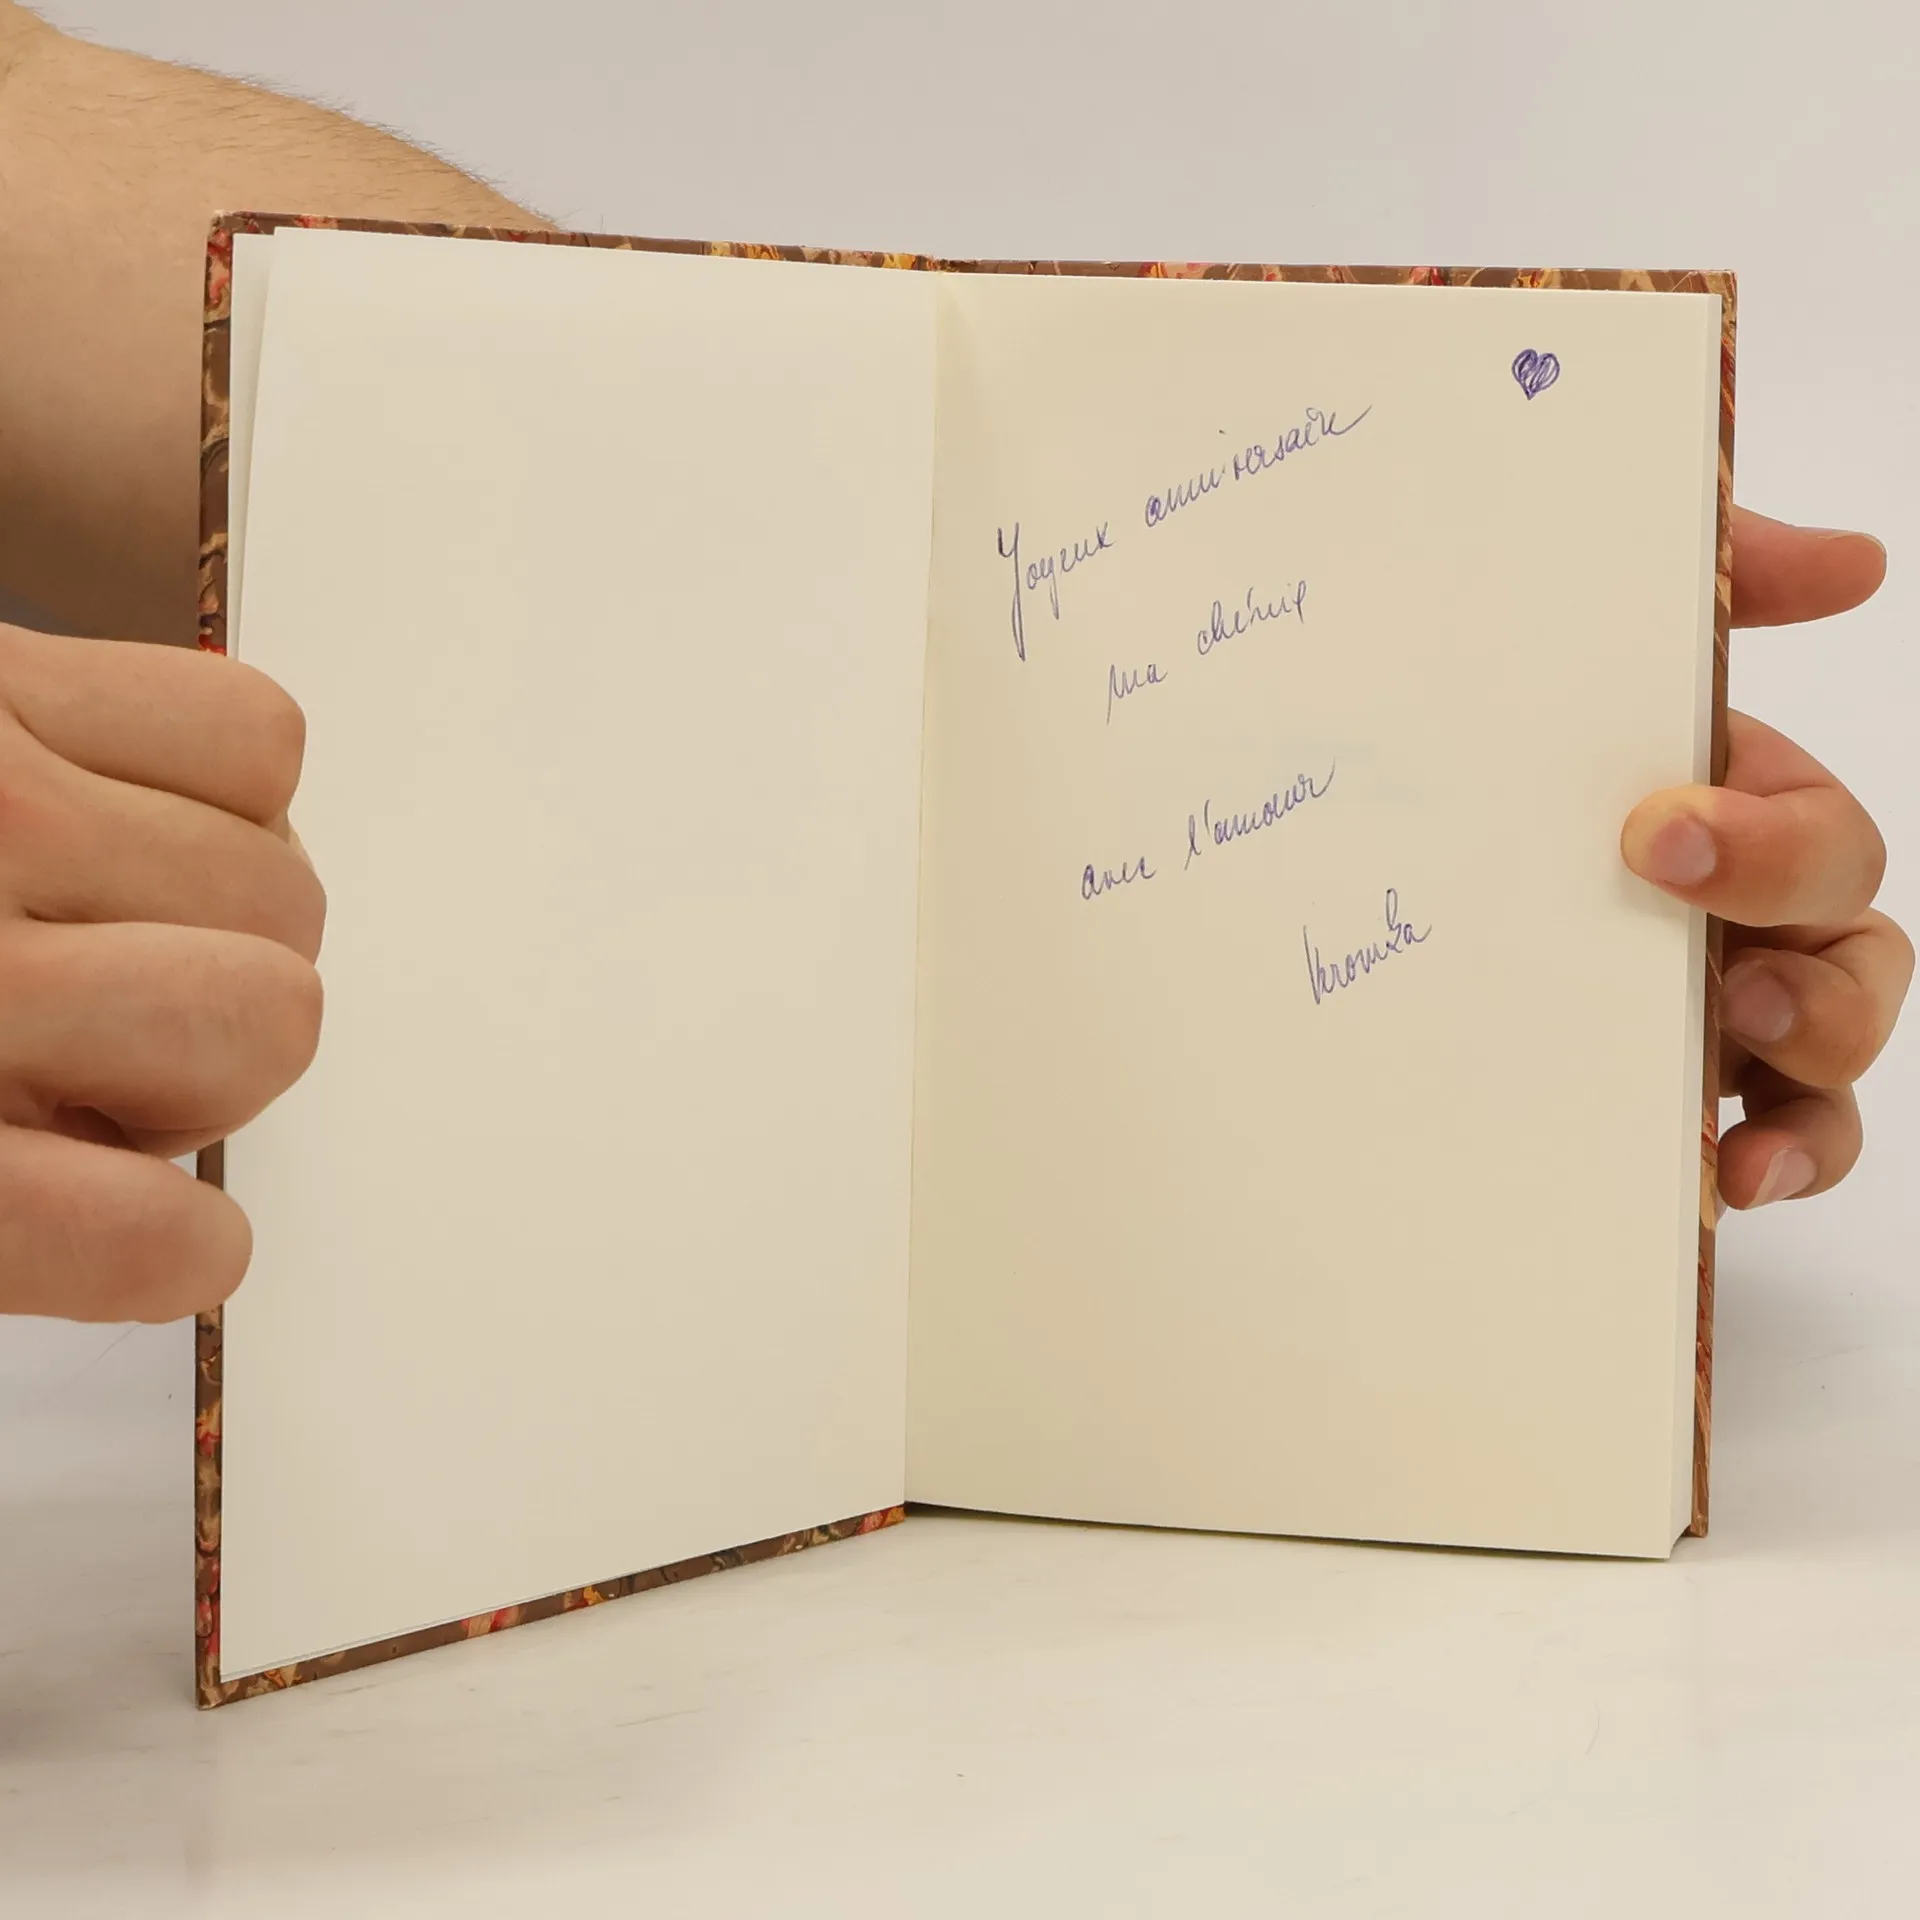 Joyeux anniversaire
ma chérie
avec l'amour
Veronika